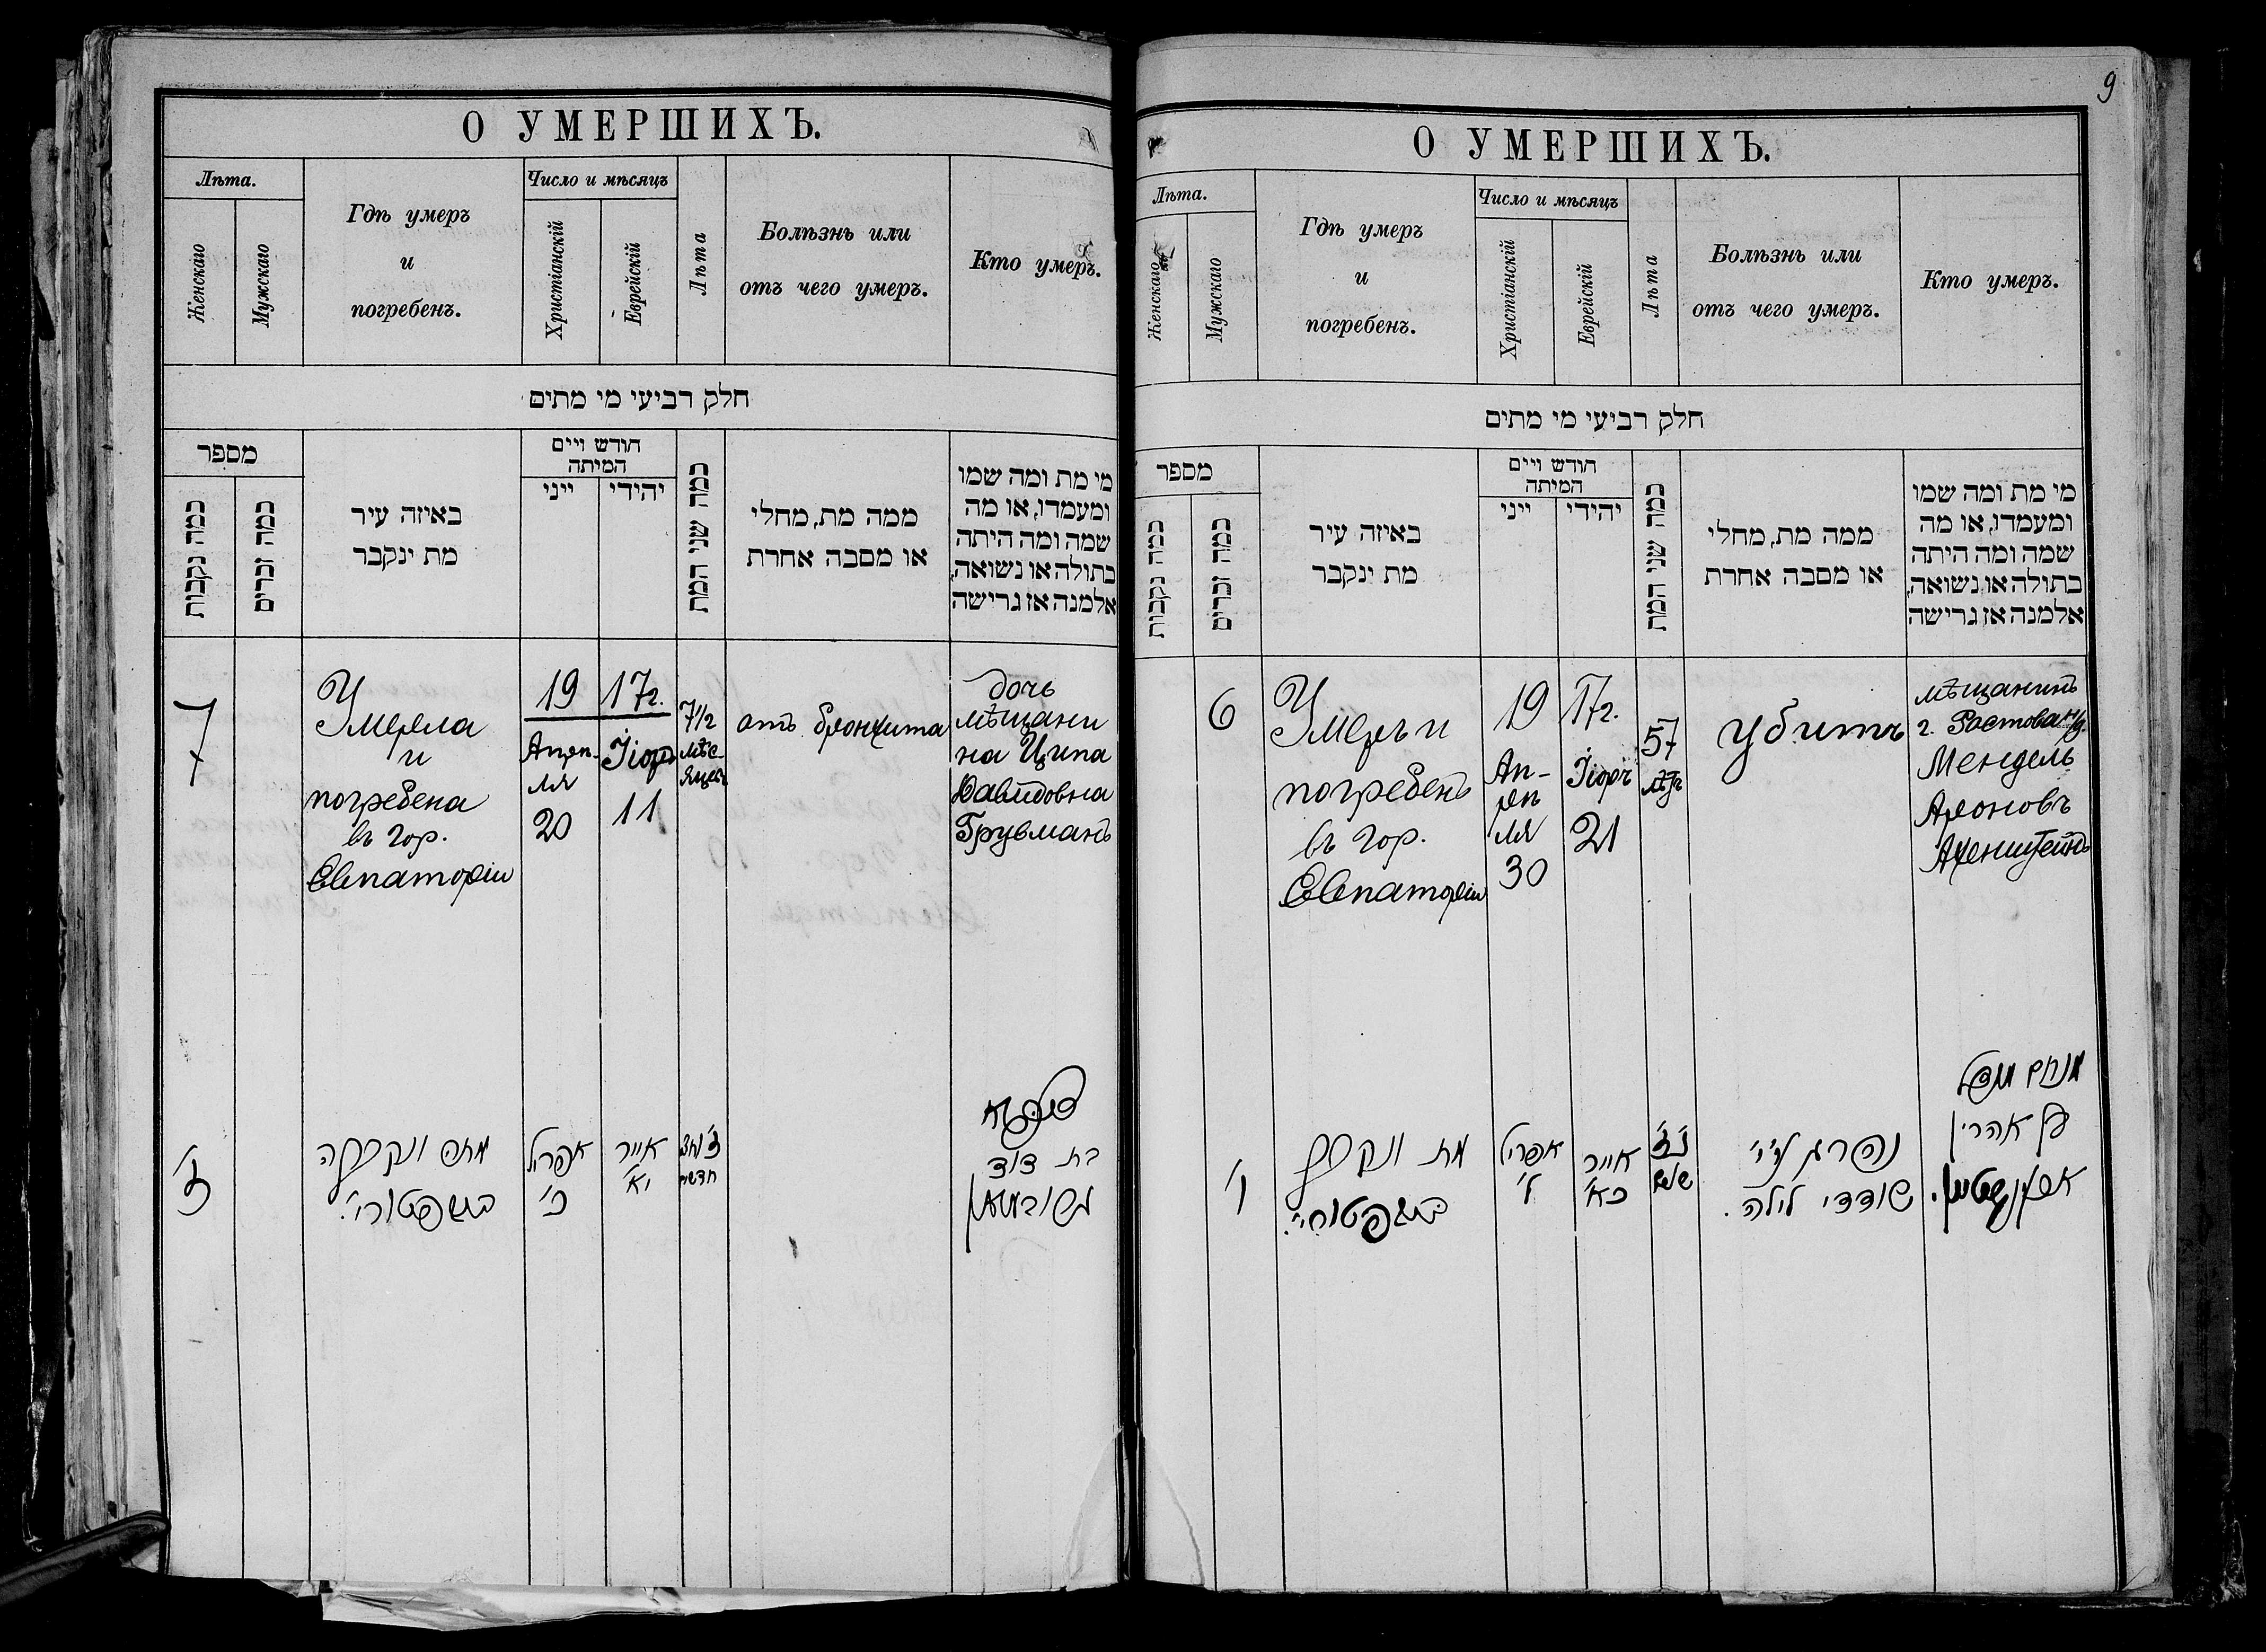 О УМЕРШИХЪ.
Лѣта.
Женскаго
Мужскаго
Гдѣ умеръ
и
погребенъ.
Число и мѣсяцъ
Христіанскій
Еврейскій
Лѣта
Болѣзнь или
отъ чего умеръ.
Кто умеръ.
חלק רביעי מי מתים
מספר
כמה נקבות
כמה זכרים
באיזה עיר
מת ינקבר
חודש ויים
המיתה
ייני
יהודי
כמה שני המת
ממה מת, מחלי
או מסבה אחרת
מי מת ומה שמו
ומעמדו, או מה
שמה ומה היתה
בתולה או נשואה,
אלמנה אז גרישה
7
Умерла
и
погребена
въ гор.
Евпаторіи
19
Апрѣ-
ля
20
17г.
Іюръ
11
7 1/2
мѣс-
яцев
отъ бронхита
дочь
мѣщани
на Ципа
Давидовна
Грувманъ
ז'
אפריל
כ'
אייר
יא'
חדשים
בת דוד
9
О УМЕРШИХЪ.
Лѣта.
Женскаго
Мужскаго
Гдѣ умеръ
и
погребенъ.
Число и мѣсяцъ
Христіанскій
Еврейскій
Лѣта
Болѣзнь или
отъ чего умеръ.
Кто умеръ.
חלק רביעי מי מתים
מספר
כמה נקבות
כמה זכרים
באיזה עיר
מת ינקבר
חודש ויים
המיתה
ייני
יהודי
כמה שני המת
ממה מת, מחלי
או מסבה אחרת
מי מת ומה שמו
ומעמדו, או מה
שמה ומה היתה
בתולה או נשואה,
אלמנה אז גרישה
6
Умеръ и
погребенъ
въ гор.
Евпаторіи
19
Ап-
рѣ
ля
30
17г.
Іюръ
21
57
лѣтъ
убитъ
мѣщанинъ
г. Ростова н/д.
Мендель
Ароновъ
ו'
אפריל
ל'
אייר
כא'
נ"ז
נהרג ע"י
שודדי לילה.
מנחם מנדל
בן אהרן